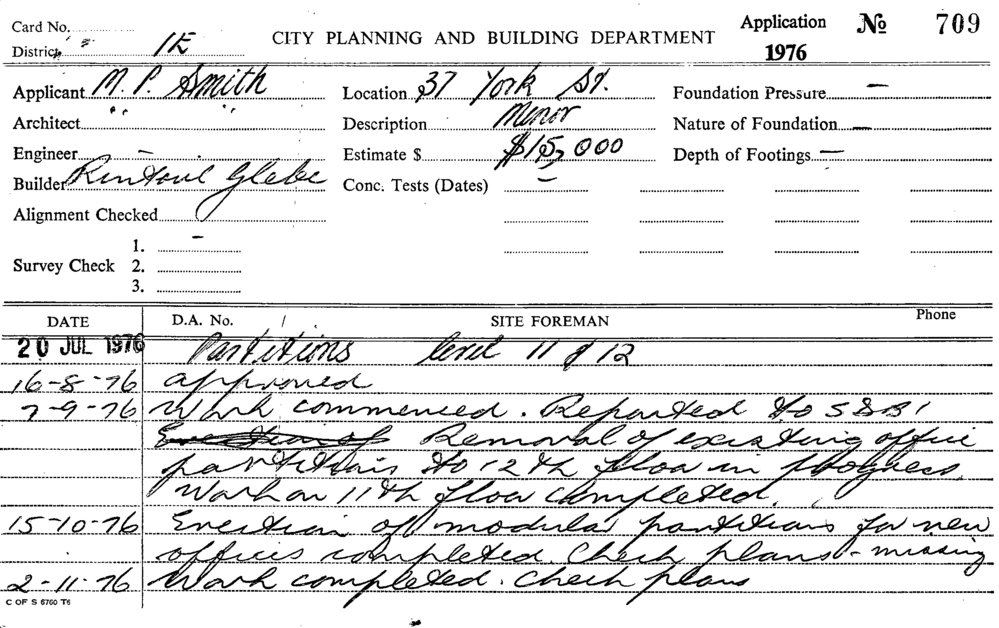 Card No.
District 1E
CITY PLANNING AND BUILDING DEPARTMENT
Application № 709
1976
Applicant M. P. Smith
Location 37 York St.
Foundation Pressure —
Architect " "
Description Minor
Nature of Foundation —
Engineer —
Estimate $ $15,000
Depth of Footings —
Builder Rintoul Glebe
Conc. Tests (Dates) —
Alignment Checked
Survey Check
1. —
2.
3.
DATE D.A. No. SITE FOREMAN Phone
20 JUL 1976 Partitions level 11 & 12
16-8-76 approved
7-9-76 Work commenced. Reported to S & B1
Removal of existing office
partitions to 12th floor in progress.
Work on 11th floor completed.
15-10-76 Erection of modular partitions for new
offices completed. Check plans - missing
2-11-76 Work completed. Check plans
C OF S 6760 T6